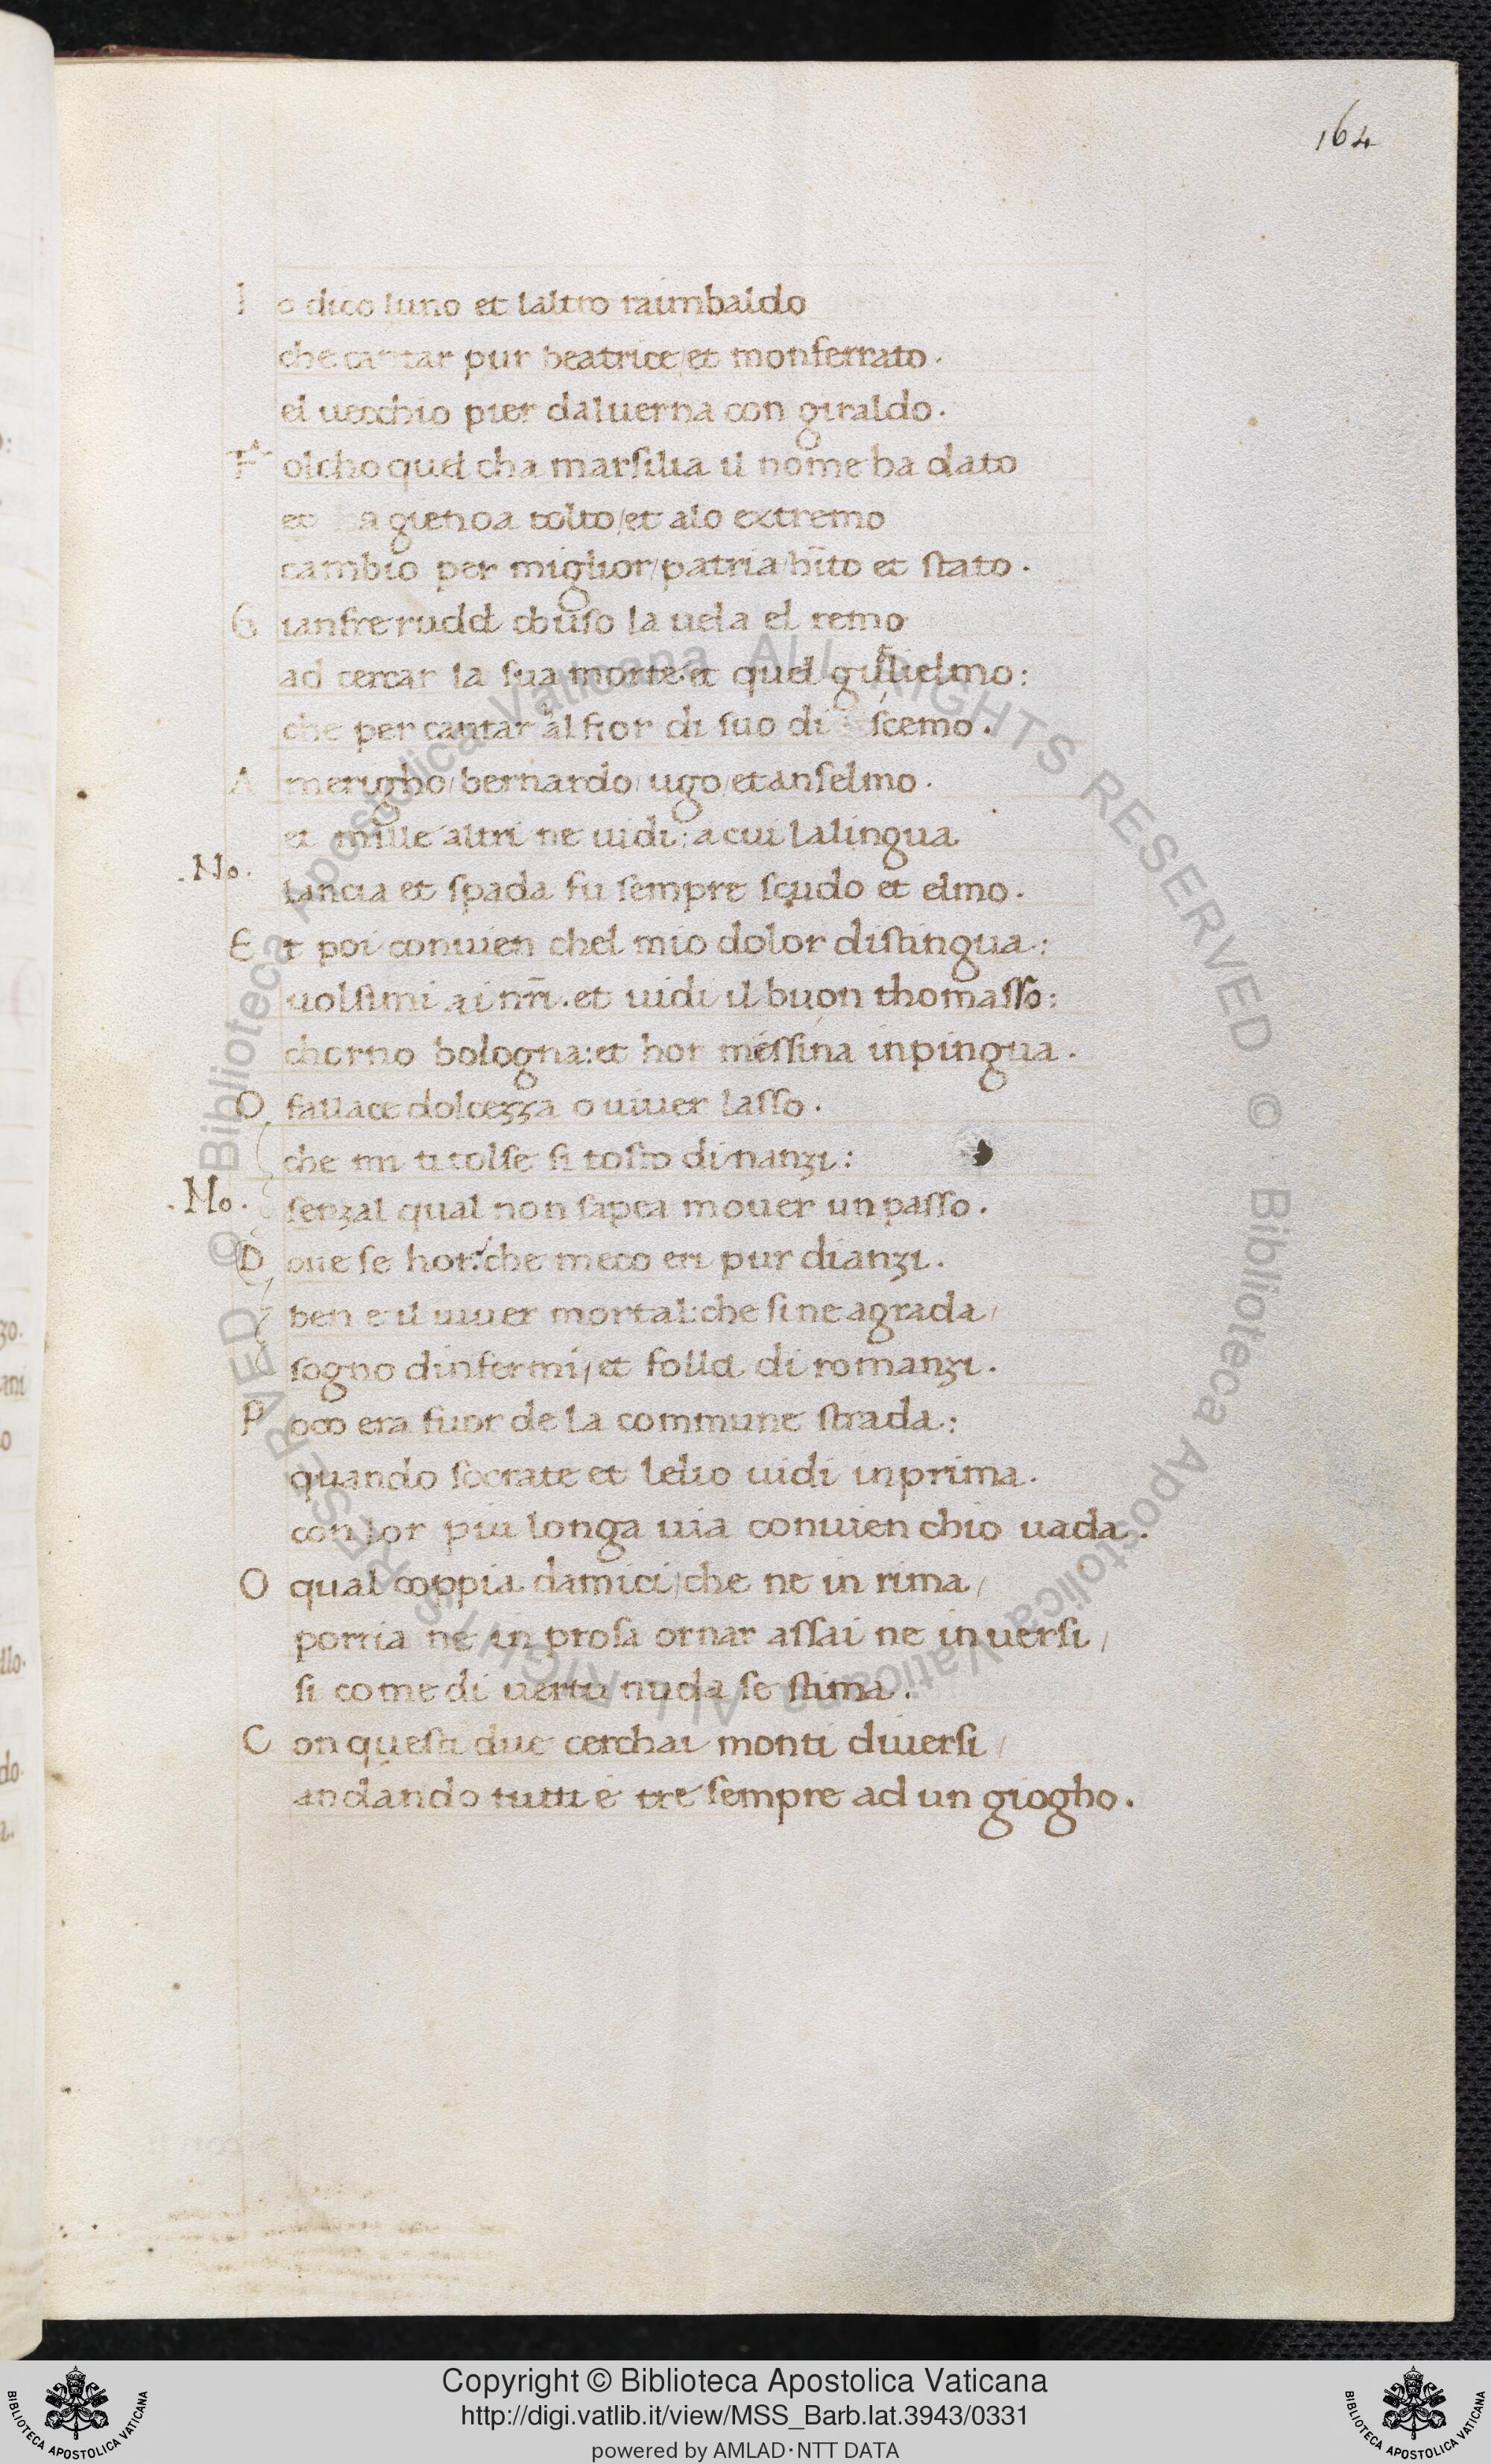 164
I o dico luno et laltro raimbaldo
che cantar pur beatrice/et monferrato.
el uecchio pier daluerna con giraldo.
F olcho quel cha marsilia il nome ha dato
et a gienoa tolto/et alo extremo
cambio per miglior/patria/hīto et stato.
G ianfre rudel chuso la uela el remo
ad cercar la sua morte:et quel gulielmo:
che per cantar al fior di suo di scemo.
A merigho/bernardo/ugo/et anselmo.
et mille altri ne uidi: a cui la lingua
.No.
lancia et spada fu sempre scudo et elmo.
E t poi conuien chel mio dolor distingua:
uolsimi ai nr̄i. et uidi il buon thomasso:
chorno bologna:et hor messina inpingua.
O fallace dolcezza o uiuer lasso.
che mi ti tolse si tosto dinanzi:
.No.
senzal qual non sapea mouer un passo.
D oue se hor:che meco eri pur dianzi.
ben e il uiuer mortal:che si ne agrada/
sogno dinfermi/et folla di romanzi.
P oco era fuor de la commune strada:
quando socrate et lelio uidi inprima.
con lor piu longa uia conuien chio uada.
O qual coppia damici/che ne in rima/
porria ne in prosa ornar assai ne in uersi/
si come di uertu nuda se stima.
C on questi due cerchai monti diuersi/
andando tutti e tre sempre ad un giogho.
© Biblioteca Apostolica Vaticana ALL RIGHTS RESERVED © Biblioteca Apostolica Vaticana ALL RIGHTS RESERVED
Copyright © Biblioteca Apostolica Vaticana
http://digi.vatlib.it/view/MSS_Barb.lat.3943/0331
powered by AMLAD·NTT DATA
BIBLIOTECA APOSTOLICA VATICANA
BIBLIOTECA APOSTOLICA VATICANA